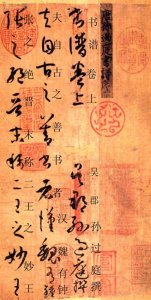 書譜卷上
书谱卷上
吳郡孫過庭撰
吴郡孙过庭撰
夫自古之善書者漢魏有鍾
夫自古之善书者汉魏有钟
張之絕晉末稱二王之妙王
张之绝晋末称二王之妙王